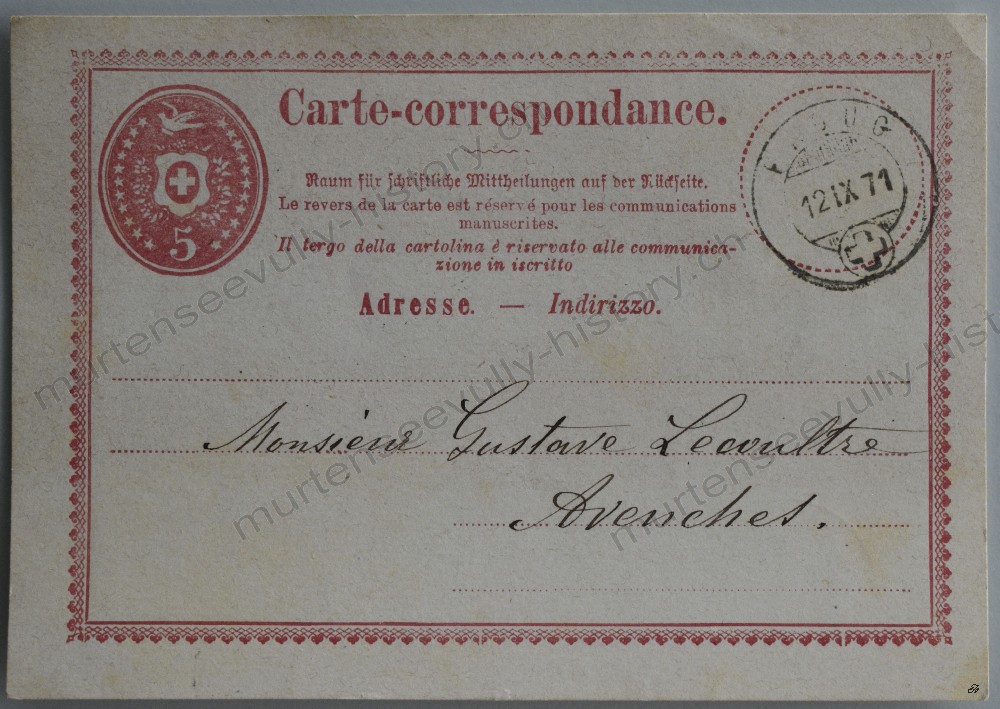 Carte-correspondance.
Raum für schriftliche Mittheilungen auf der Rückseite.
Le revers de la carte est réservé pour les communications
manuscrites.
Il tergo della cartolina è riservato alle communica-
zione in iscritto
Adresse. — Indirizzo.
5
12 IX 71
Monsieur Gustave Lecoultre
Avenches.
murtenseevully-history.ch
murtenseevully-history.ch
murtenseevully-history